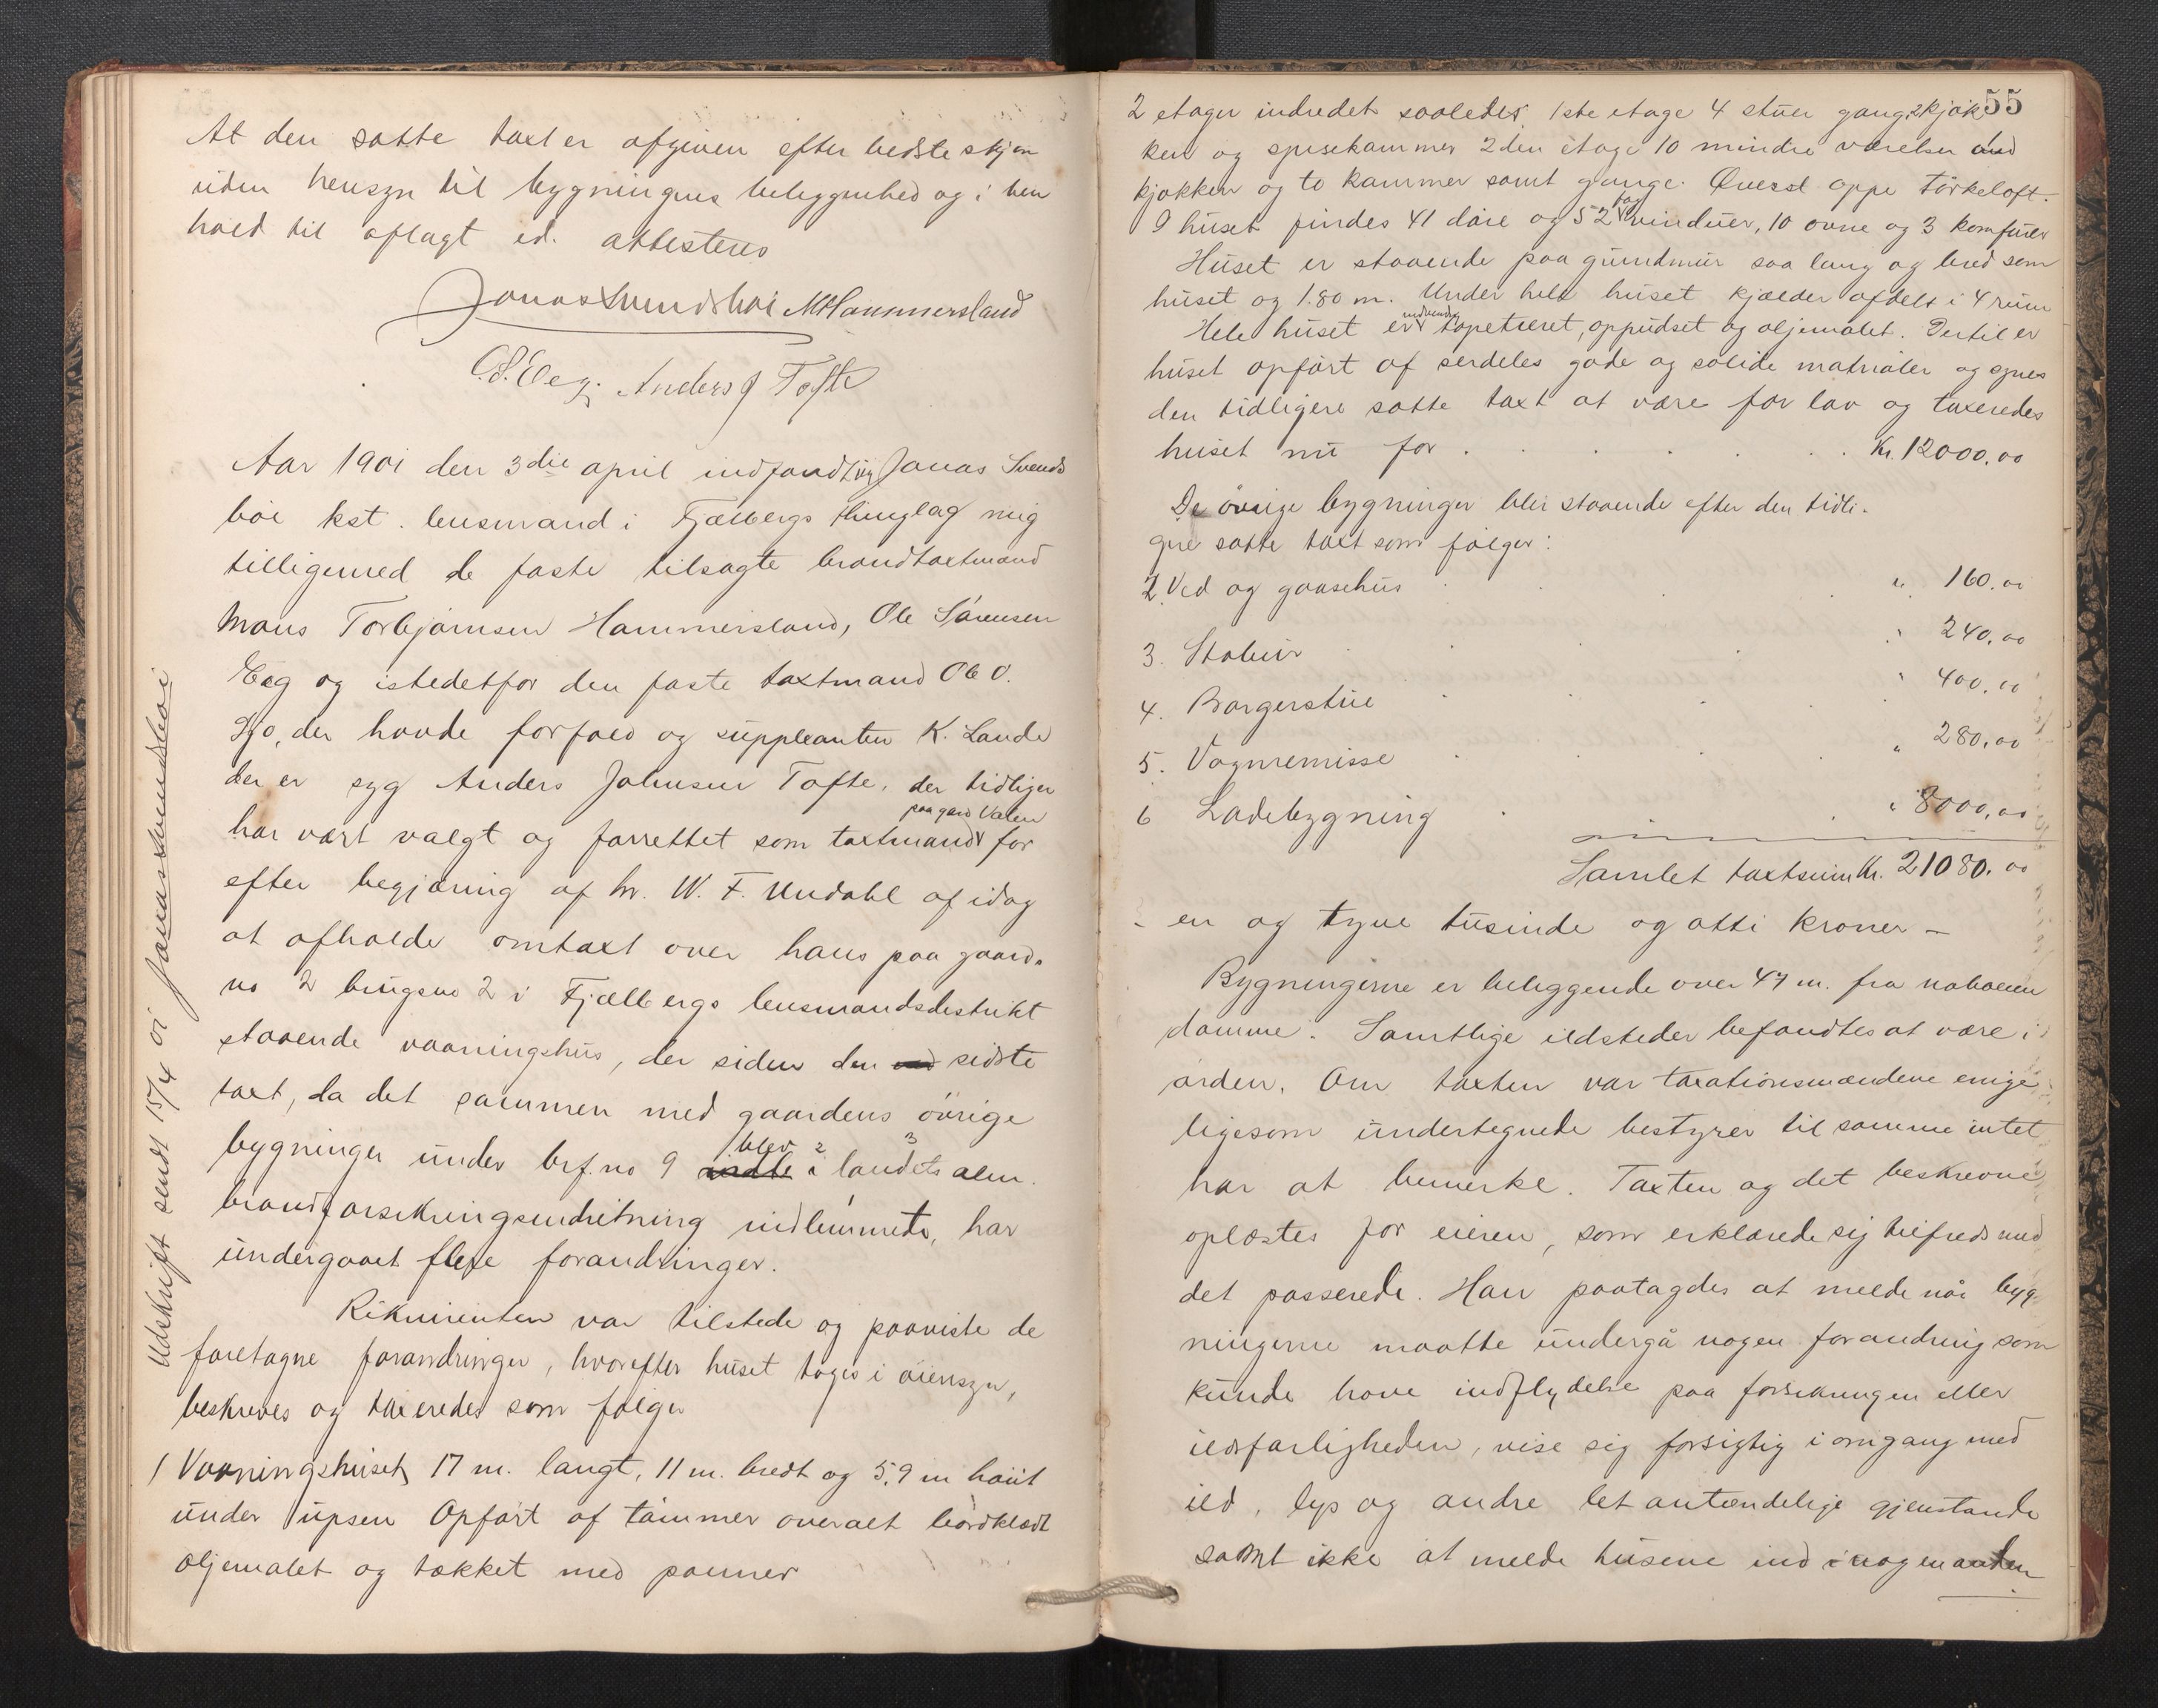 At den satte taxt er afgiven efter bedste skjøn
uden hensyn til bygningenes beliggenhed og i hen
hold til aflagt ed. attesteres
Jonas Svendsbøi M Hammersland
O.S. Eeg. Anders J Tofte
Aar 1901 den 3die april indfandt jeg Jonas Svends
bøe kst. lensmand i Fjælbergs thinglag mig
tilligemed de faste tilsagte brandtaxtmænd
Mons Torbjørnsen Hammersland, Ole Sørensen
Eeg og istedetfor den faste taxtmand Ole O.
der havde forfald og suppleanten K. Lande
der er syg Anders Johnsen Tofte, der tidliger
har vært valgt og forrettet som taxtmand paa gard Valen for
efter begjæring af hr. W. F. Undahl af idag
at afholde omtaxt over hans paa gaard.
no 2 brugsno 2 i Fjælbergs lensmandsdestrikt
staaende vaaningshus, der siden den sidste
taxt, da det sammen med gaardens øvrige
bygninger under brf. no 9 blev i landets alm.
brandforsikringsindretning indlemmet, har
undergaaet flere forandringer.
Rikvirenten var tilstede og paaviste de
foretagne forandringer, hvorefter huset toges i øiensyn,
beskreves og taxeredes som følger
1 Vaaningshuset, 17 m. langt, 11 m. bredt og 5,9 m høiit
under upsen Opført af tømmer overalt bordklædt
oljemalet og tækket med panner
Udskrift sendt 15/4 01 Jonas Svendsbøi
55
2 etager indredet saaledes. 1ste etage 4 stuer gang, 2 kjøk
ken og spisekammer 2den etage 10 mindre værelser med
kjøkken og to kammer samt gange. Øverst oppe tørkeloft.
I huset findes 41 døre og 52 fag vinduer, 10 ovne og 3 komfuer
Huset er staaende paa gundmur saa lang og bred som
huset og 1.80 m. Under hele huset kjælder afdelt i 4 rum
Hele huset er indvendig tapetseret, oppudset og oljemalet. Dertil er
huset opført af serdeles gode og solide matrialer og synes
den tidligere satte taxt at være for lav og taxeredes
huset nu for . . . . . . Kr. 12000,00
De øvrige bygninger blir staaende efter den tidli.
gere satte taxt som følger:
2. Ved og gaasehus . . . " 160.00
3. Stabur . . . " 240,00
4. Borgerstue . . . " 400,00
5. Vognremisse . . . " 280,00
6 Ladebygning . . . " 8000,00
Samlet taxtsum Kr. 21080.00
- en og tyve tusinde og otti kroner -
Bygningerne er beliggende over 47 m. fra naboeien
damme. Samtlige ildsteder befandtes at være i
orden. Om taxten var taxationsmændene enige
ligesom undertegnede bestyrer til samme intet
har at bemerke. Taxten og det beskrevne
oplæstes for eieren, som erklærede sig tilfreds med
det passerede. Han paatagdes at melde når byg
ningerne maatte undergå nogen forandring som
kunde have indflydelse paa forsikringen eller
ildsfarligheden, vise sig forsigtig i omgang med
ild, lys og andre let antændelige gjenstande
samt ikke at melde husene ind i nogen anden